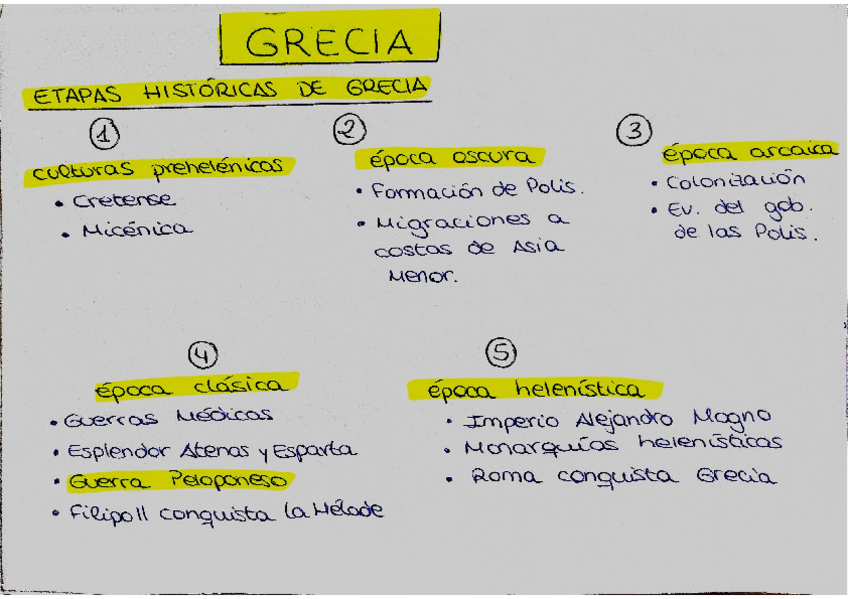 GRECIA
ETAPAS HISTÓRICAS DE GRECIA
1
culturas prehelénicas
• Cretense
• Micénica
2
época oscura
• Formación de Polis.
• Migraciones a
costas de Asia
Menor.
3
época arcaica
• Colonización
• Ev. del gob.
de las Polis.
4
época clásica
• Guerras Médicas
• Esplendor Atenas y Esparta
• Guerra Peloponeso
• Filipo II conquista la Hélade
5
época helenística
• Imperio Alejandro Magno
• Monarquías helenísticas
• Roma conquista Grecia